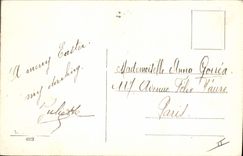 A merry Easter
my darling
Mademoiselle Anna Gorréa
117 Avenue Félix Faure
Paris